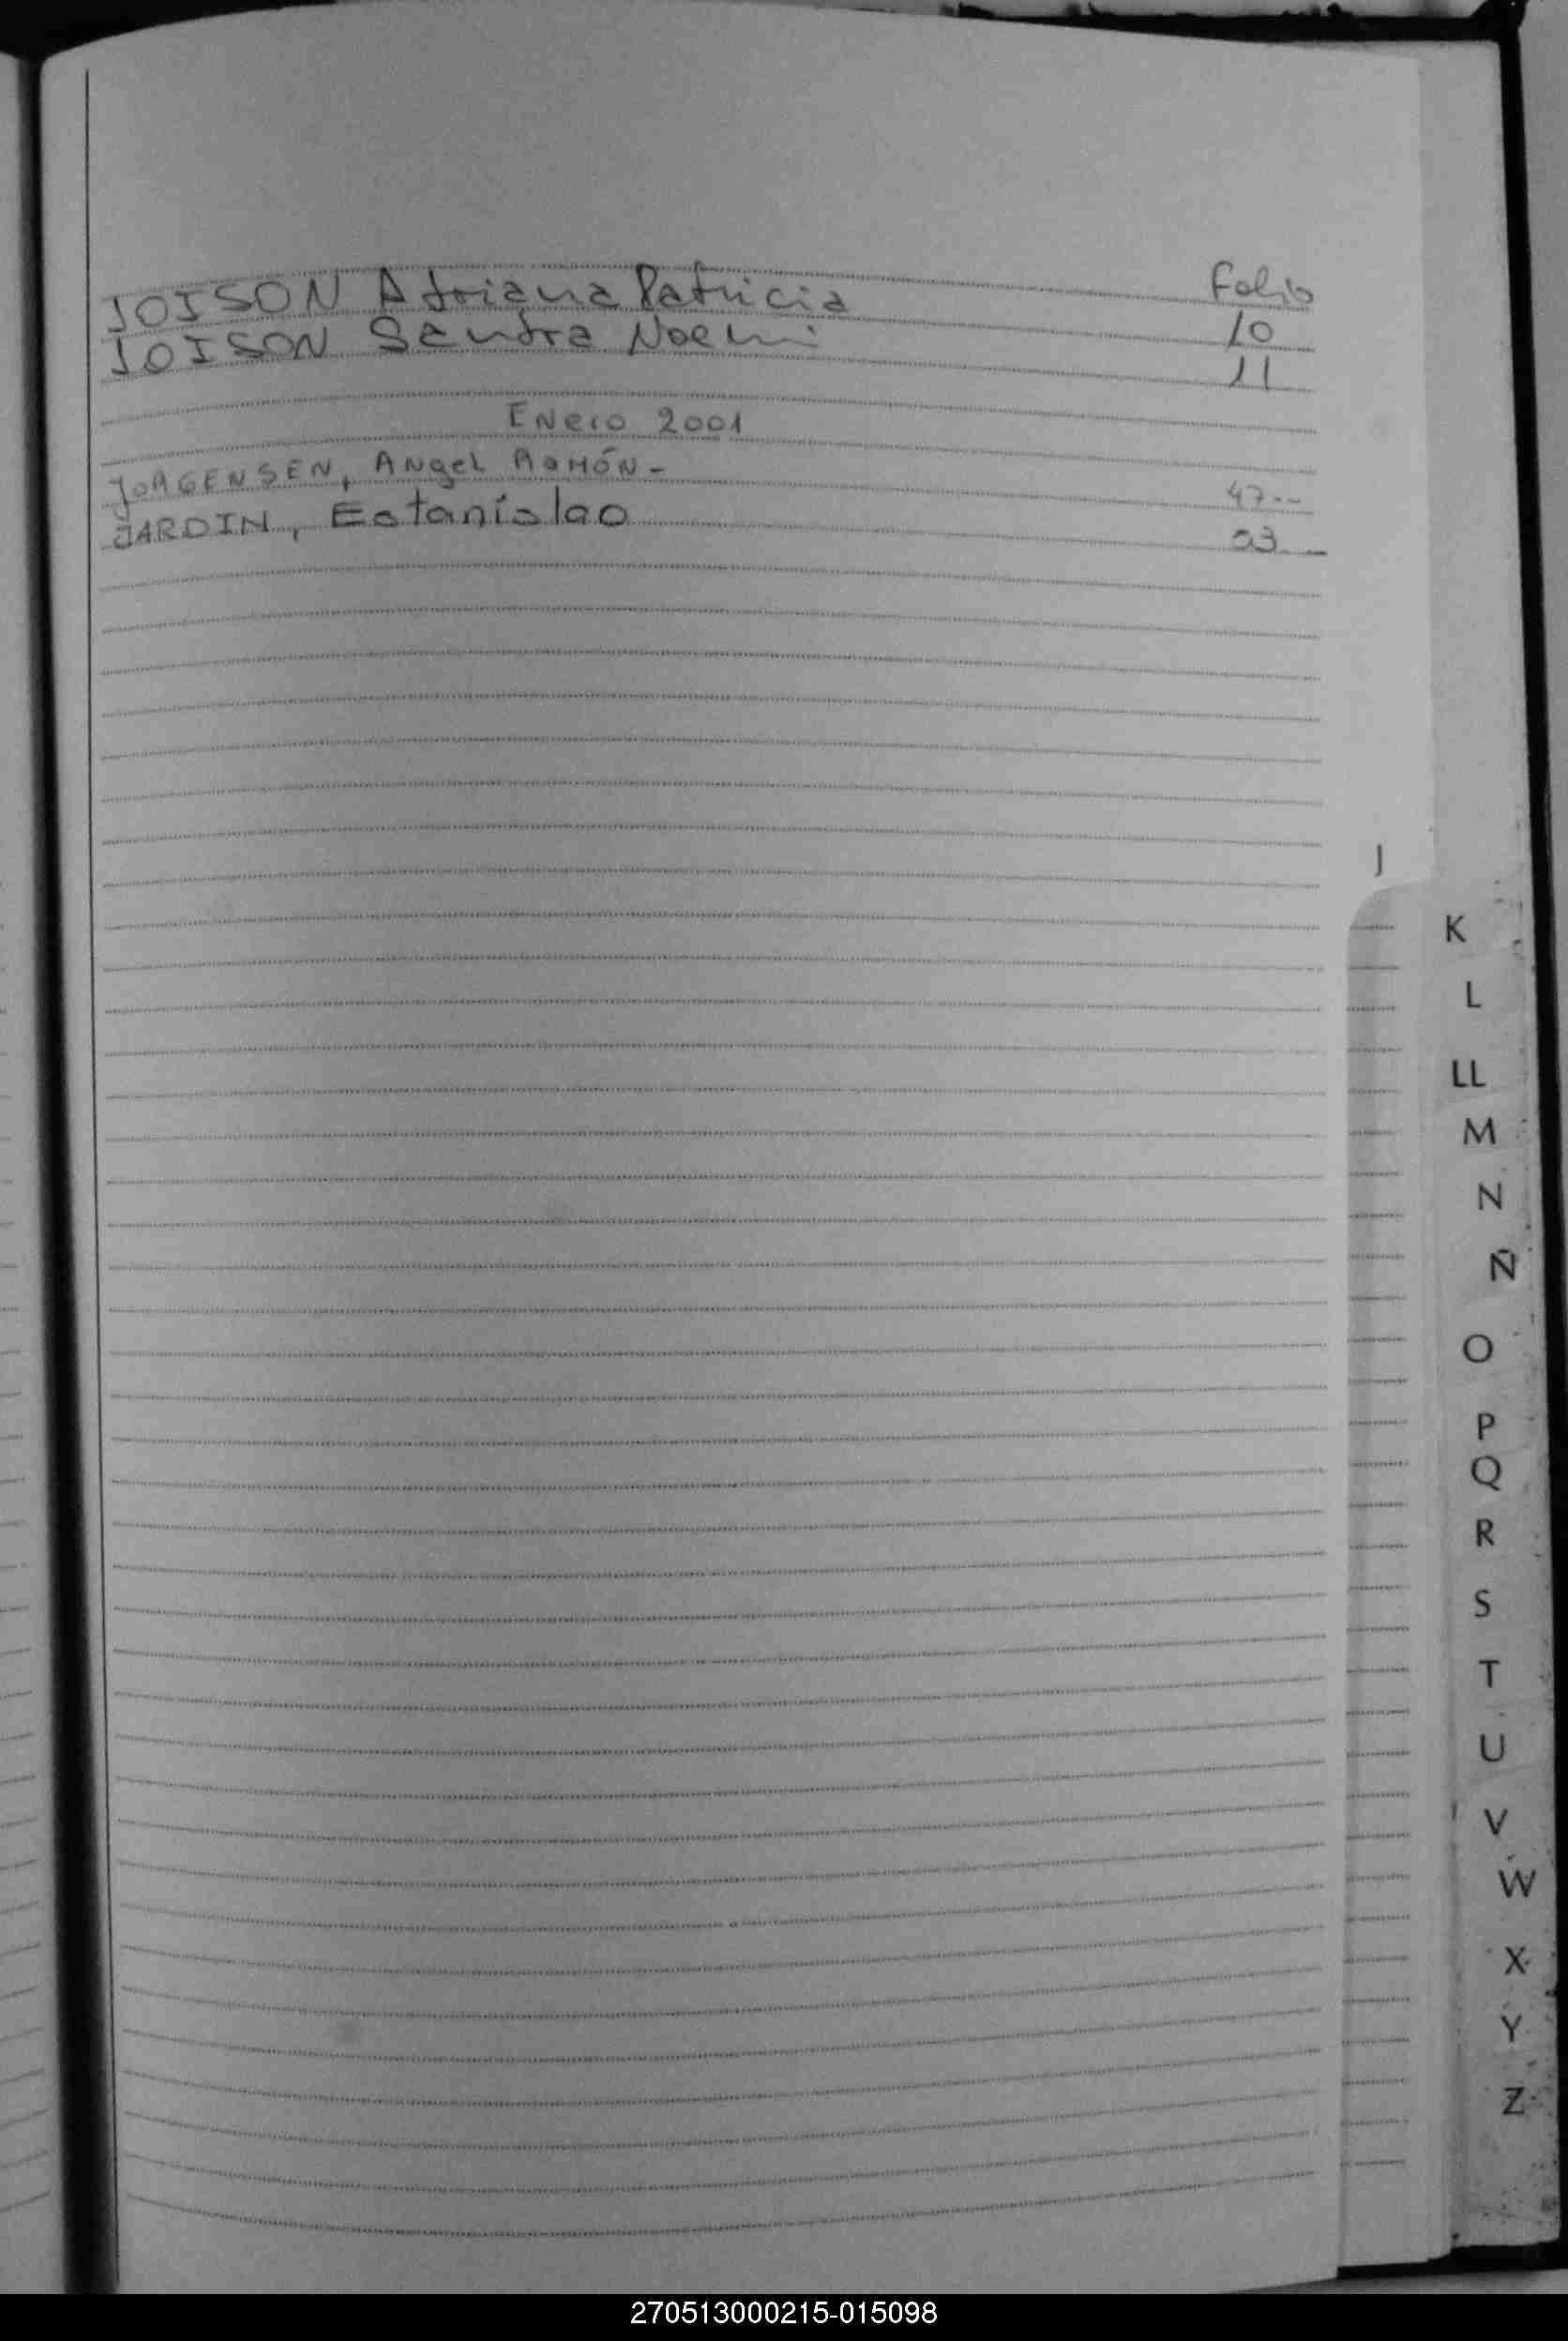 Folio
JOISON Adriana Patricia 10
JOISON Sandra Noemi 11
ENERO 2001
JORGENSEN, ANgEL RAMÓN- 47--
JARDIN, Estanislao 03
J
K
L
LL
M
N
Ñ
O
P
Q
R
S
T
U
V
W
X
Y
Z
270513000215-015098